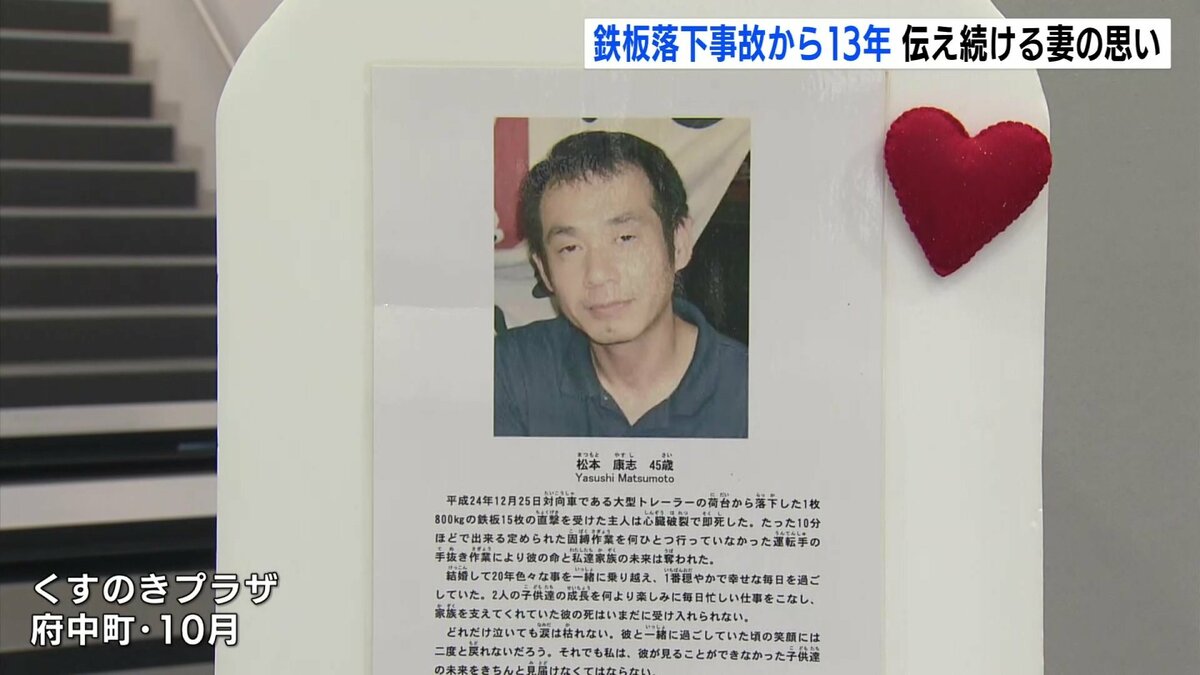 鉄板落下事故から13年 伝え続ける妻の思い
松本 康志 45歳
Yasushi Matsumoto
平成24年12月25日対向車である大型トレーラーの荷台から落下した1枚
800kgの鉄板15枚の直撃を受けた主人は心臓破裂で即死した。たった10分
ほどで出来る定められた固縛作業を何ひとつ行っていなかった運転手の
手抜き作業により彼の命と私達家族の未来は奪われた。
結婚して20年色々な事を一緒に乗り越え、1番穏やかで幸せな毎日を過ご
していた。2人の子供達の成長を何より楽しみに毎日忙しい仕事をこなし、
家族を支えてくれていた彼の死はいまだに受け入れられない。
どれだけ泣いても涙は枯れない。彼と一緒に過ごしていた頃の笑顔には
二度と戻れないだろう。それでも私は、彼が見ることができなかった子供達
の未来をきちんと見届けなくてはならない。
くすのきプラザ
府中町・10月